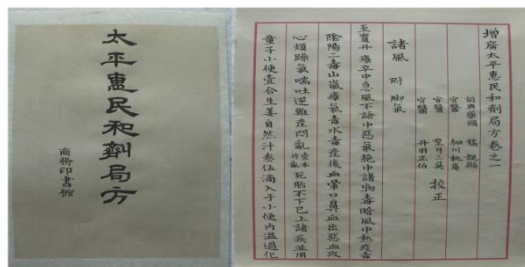 太平惠民和劑局方
商務印書館
增廣太平惠民和劑局方卷之一
官醫 細川桃庵
官醫 望月三英 校正
官醫 丹羽正伯
諸風 附脚氣
至寶丹 療卒中急風不語中惡氣絕中諸物毒暗風中熱疫毒
陰陽二毒山嵐瘴氣毒水毒產後血暈口鼻血出惡血攻
心煩躁氣喘吐逆難產悶亂死胎不下已上諸疾並用
童子小便壹合生姜自然汁叁伍滴入于小便內溫過化